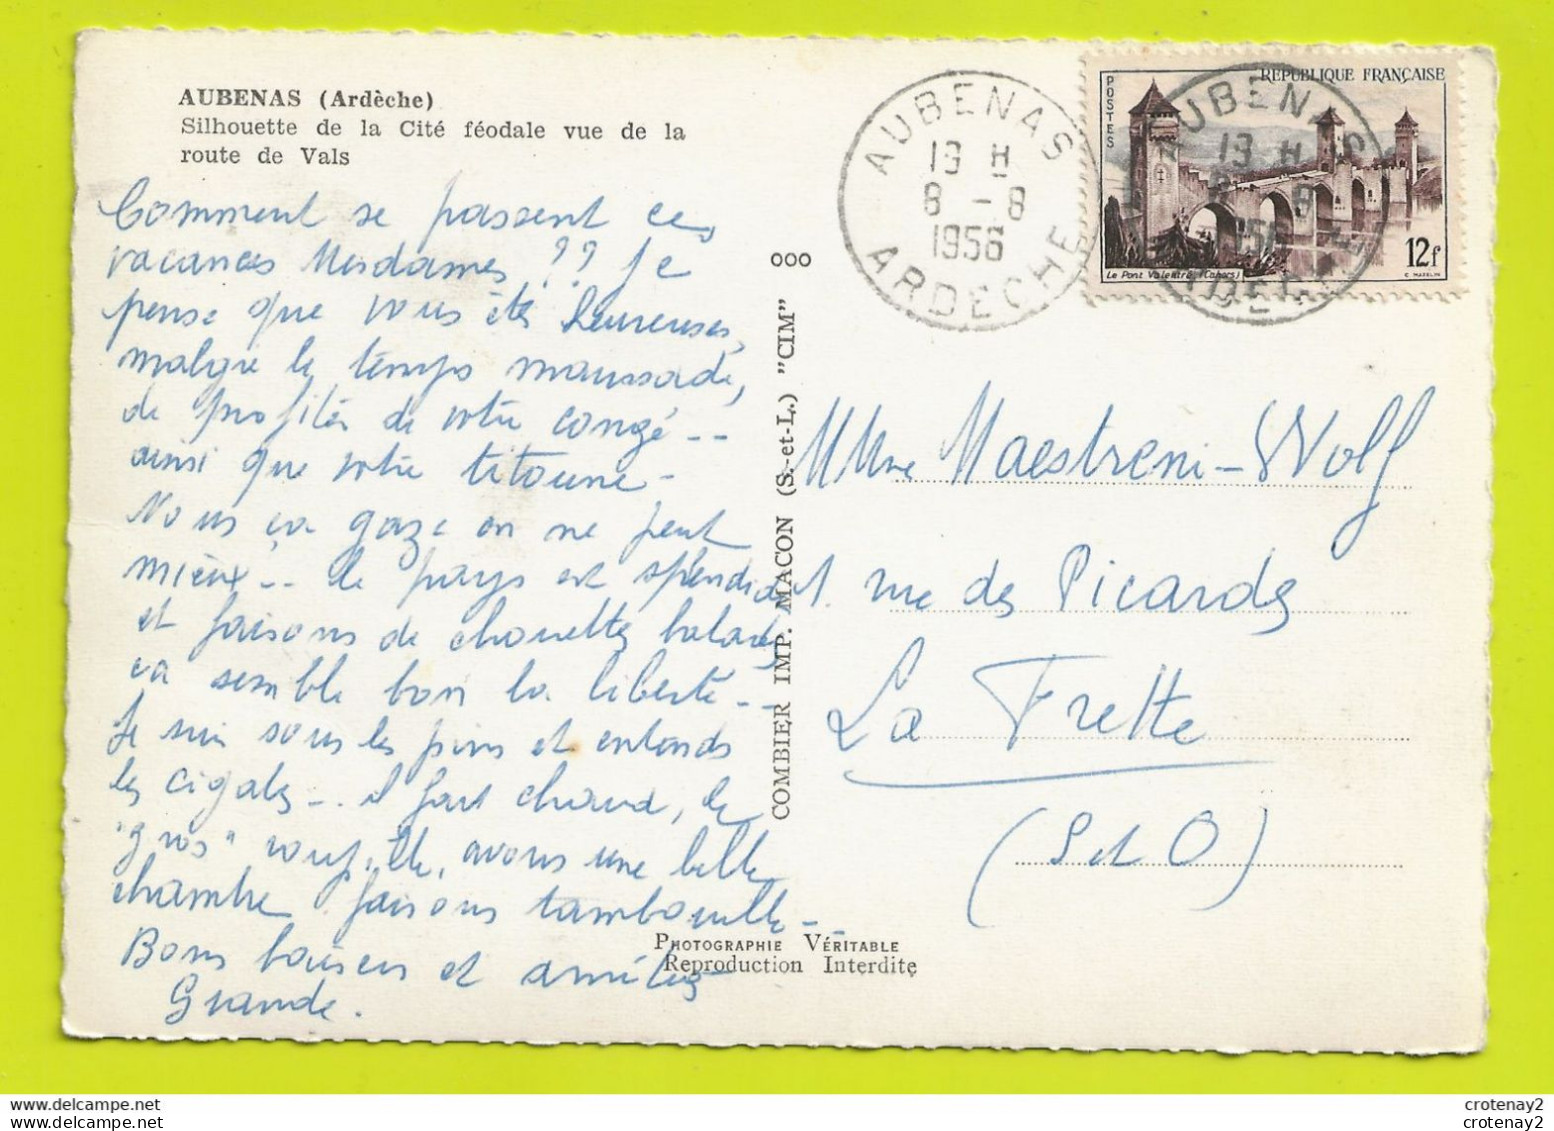 AUBENAS (Ardèche)
Silhouette de la Cité féodale vue de la
route de Vals
Comment se passent ces
vacances Mesdames ?? Je
pense que vous êtes heureuses,
malgré le temps maussade,
de profiter de votre congé --
ainsi que votre titoune -
Nous ça gaze on ne peut
mieux -- le pays est splendide
et faisons de chouettes balades
ça semble bon la liberté --
Je suis sous les pins et entends
les cigales -- il fait chaud, le
"gros" roupille, avons une belle
chambre faisons tambouille -
Bons baisers et amitiés
Grande.
AUBENAS
19 H
8 - 8
1956
ARDECHE
ooo
COMBIER IMP. MACON (S.-et-L.) "CIM"
REPUBLIQUE FRANÇAISE
POSTES
Le Pont Valentré (Cahors)
12f
C. MAZELIN
AUBENAS
19 H
ARDECHE
MMme Maestreni-Wolf
1. rue des Picards
La Frette
(S et O)
PHOTOGRAPHIE VÉRITABLE
Reproduction Interdite
crotenay2
crotenay2